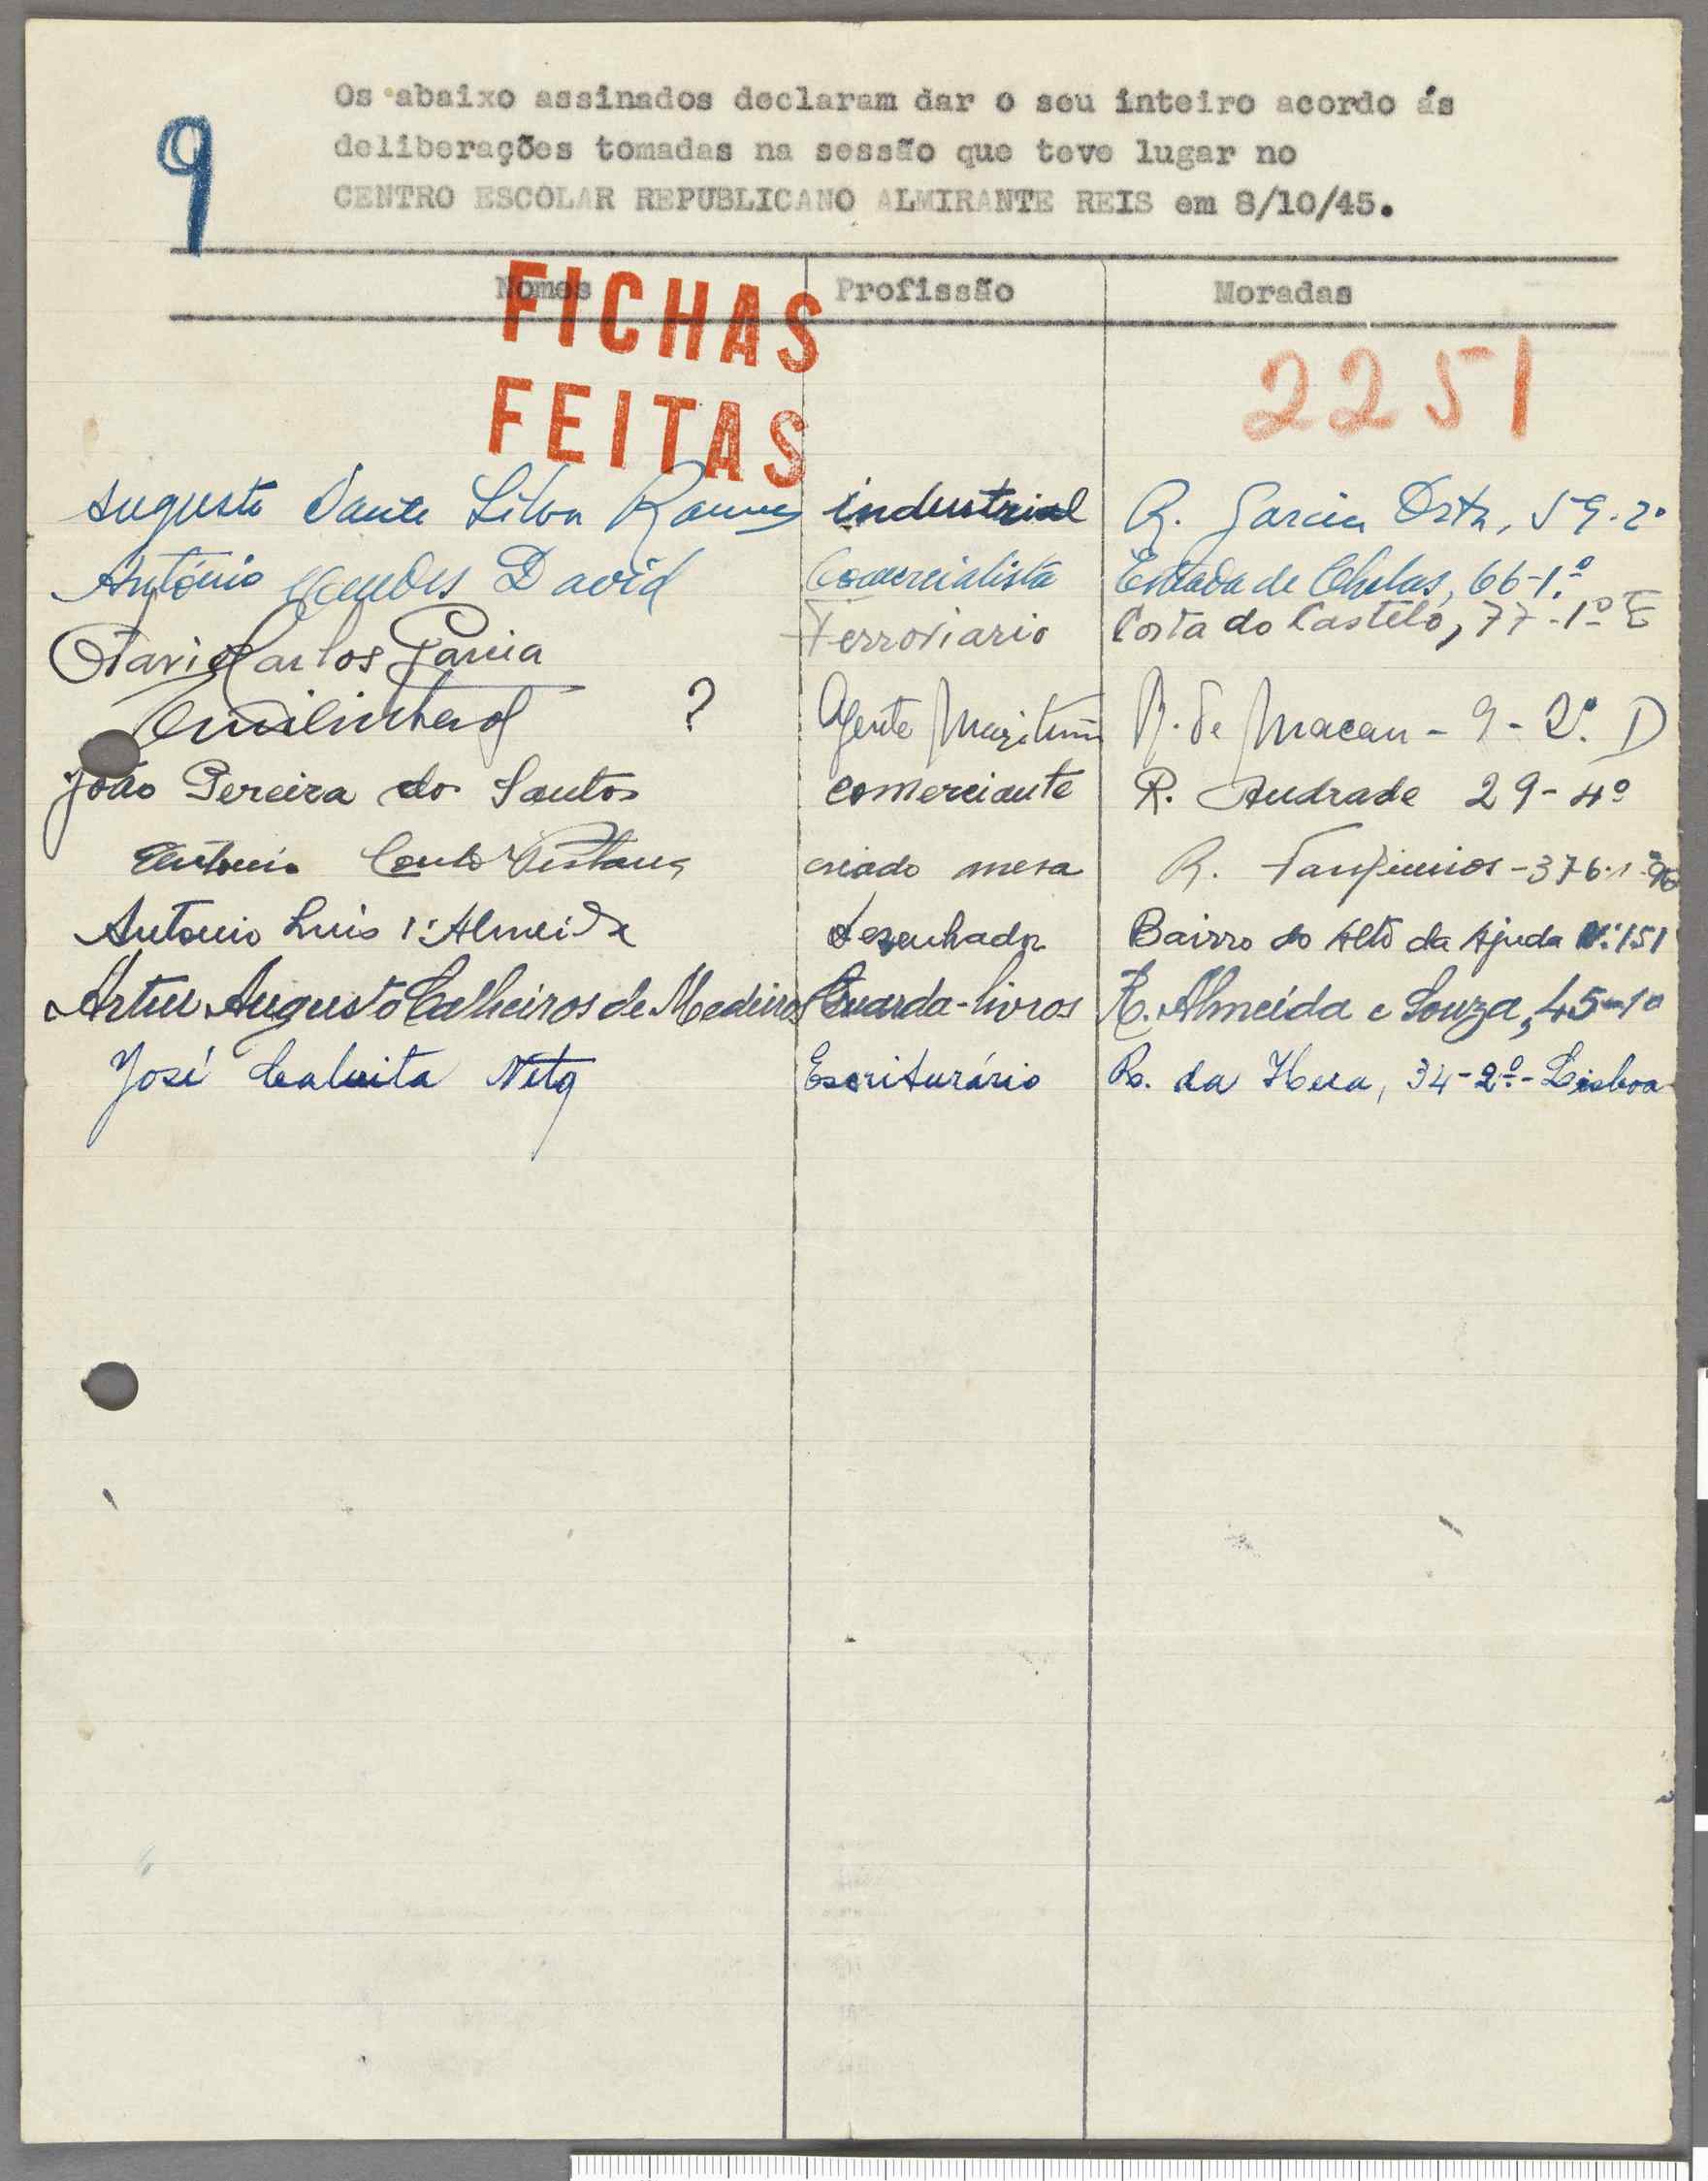 9
Os abaixo assinados declaram dar o seu inteiro acordo ás
deliberações tomadas na sessão que teve lugar no
CENTRO ESCOLAR REPUBLICANO ALMIRANTE REIS em 8/10/45.
Nomes Profissão Moradas
FICHAS
FEITAS
2251
Augusto Dante Silva Ramos industrial R. Garcia Orta, 59-2º
António Mendes David Comercialista Estrada de Chelas, 66-1.º
Otavio Carlos Garcia Ferroviario Costa do Castelo, 77-1º E
? Agente Maritimo R. de Macau - 9 - 2º. D
João Pereira dos Santos comerciante R. Andrade 29-4º
Antonio Couto criado mesa R. -376-1º
Antonio Luis d'Almeida desenhador Bairro do Alto da Ajuda Nº 151
Artur Augusto Calheiros de Medeiros Guarda-livros R. Almeida e Souza, 45-1º
José Neto Escriturário R. da Hera, 34-2º-Lisboa